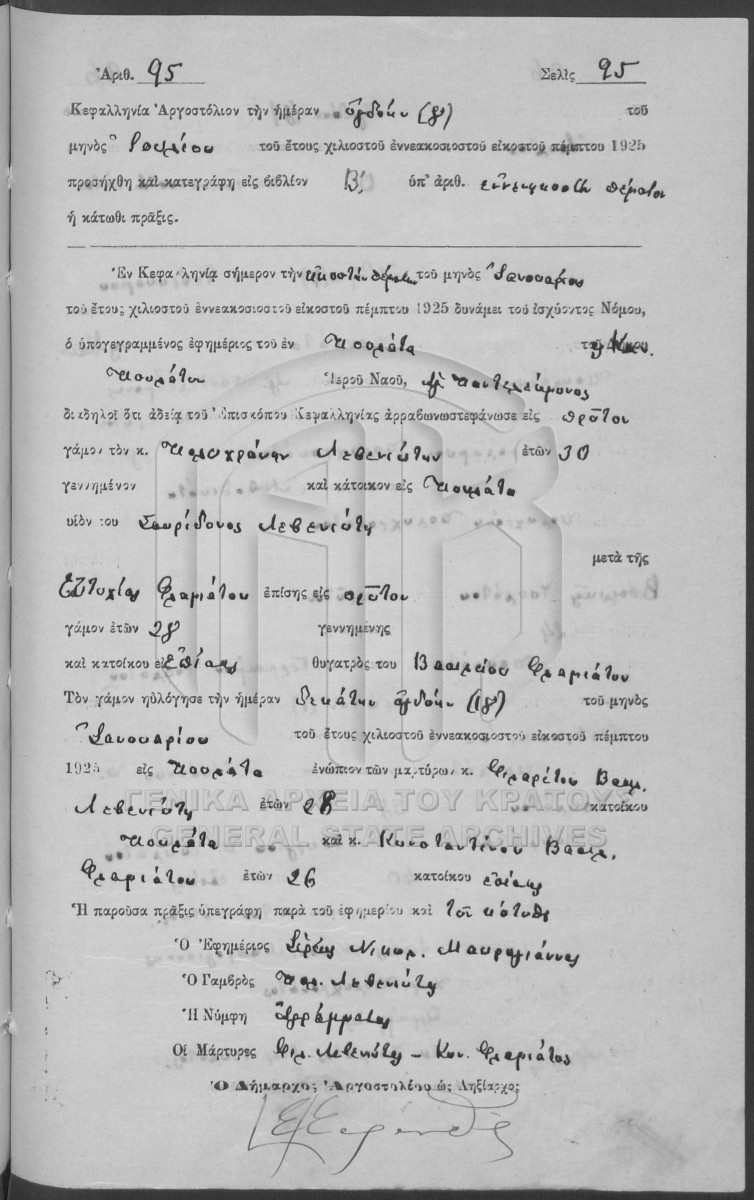 Ἀριθ. 95 Σελὶς 95
Κεφαλληνία Ἀργοστόλιον τὴν ἡμέραν ὀγδόην (8) τοῦ
μηνὸς Ἰουλίου τοῦ ἔτους χιλιοστοῦ ἐννεακοσιοστοῦ εἰκοστοῦ πέμπτου 1925
προσήχθη καὶ κατεγράφη εἰς βιβλίον Β′, ὑπ' ἀριθ. πέμπτον
ἡ κάτωθι πρᾶξις.
Ἐν Κεφαλληνίᾳ σήμερον τὴν εἰκοστὴν πέμπτην τοῦ μηνὸς Ἰανουαρίου
τοῦ ἔτους χιλιοστοῦ ἐννεακοσιοστοῦ εἰκοστοῦ πέμπτου 1925 δυνάμει τοῦ ἰσχύοντος Νόμου,
ὁ ὑπογεγραμμένος ἐφημέριος τοῦ ἐν Πουλάτα
Πουλάτων Ἱεροῦ Ναοῦ, Ἁγ. Παντελεήμονος
διαδηλοῖ ὅτι ἀδείᾳ τοῦ Ἐπισκόπου Κεφαλληνίας ἀρραβωνωστεφάνωσε εἰς πρῶτον
γάμον τὸν κ. Πολυχρόνην Λεβενιώτην ἐτῶν 30
γεννημένον καὶ κάτοικον εἰς Πουλάτα
υἱὸν του Σπυρίδονος Λεβενιώτη
μετὰ τῆς
Εὐτυχίας Φλαμιάτου ἐπίσης εἰς πρῶτον
γάμον ἐτῶν 28 γεννημένης
καὶ κατοίκου εἰς ἐπίσης θυγατρὸς του Βασιλείου Φλαμιάτου
Τὸν γάμον ηὐλόγησε τὴν ἡμέραν δεκάτην ὀγδόην (18) τοῦ μηνὸς
Ἰανουαρίου τοῦ ἔτους χιλιοστοῦ ἐννεακοσιοστοῦ εἰκοστοῦ πέμπτου
1925 εἰς Πουλάτα ἐνώπιον τῶν μαρτύρων κ. Φιλαρέτου Βασιλ.
Λεβενιώτη ἐτῶν 28 κατοίκου
Πουλάτα καὶ κ. Κωνσταντίνου Βασιλ.
Φλαμιάτου ἐτῶν 26 κατοίκου ἐπίσης
Ἡ παροῦσα πρᾶξις ὑπεγράφη παρὰ τοῦ ἐφημερίου καὶ
Ὁ Ἐφημέριος Νικολ. Μαυρογιάννης
Ὁ Γαμβρὸς Πολ. Λεβενιώτης
Ἡ Νύμφη Ἀγράμματος
Οἱ Μάρτυρες Φιλ. Λεβενιώτης – Κων. Φλαμιάτος
Ὁ Δήμαρχος Ἀργοστολίου ὡς Ληξίαρχος
ΓΕΝΙΚΑ ΑΡΧΕΙΑ ΤΟΥ ΚΡΑΤΟΥΣ
GENERAL STATE ARCHIVES